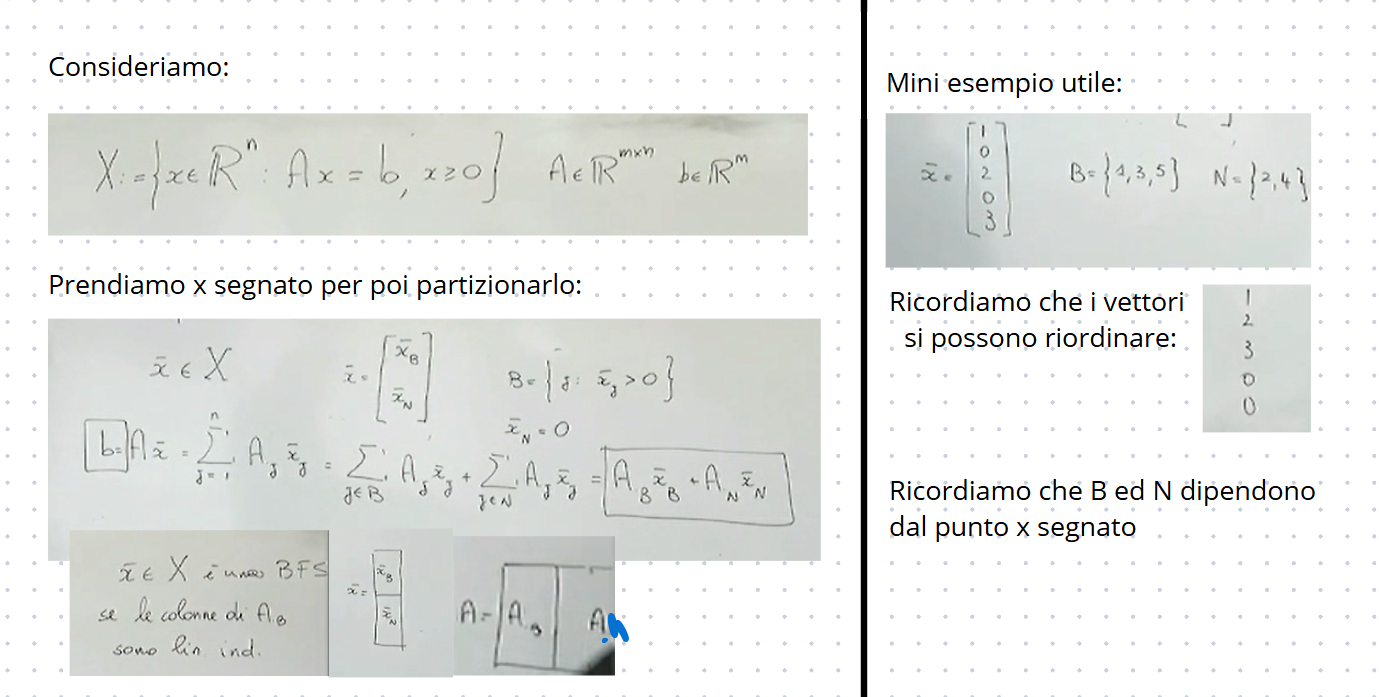 Consideriamo:
X := {x ∈ ℝⁿ : Ax = b, x ≥ 0} A ∈ ℝᵐˣⁿ b ∈ ℝᵐ
Prendiamo x segnato per poi partizionarlo:
x̄ ∈ X x̄ = [x̄_B x̄_N] B = {j : x̄_j > 0}
x̄_N = 0
b = Ax̄ = Σ_{j=1}^{n} A_j x̄_j = Σ_{j∈B} A_j x̄_j + Σ_{j∈N} A_j x̄_j = A_B x̄_B + A_N x̄_N
x̄ ∈ X è una BFS
se le colonne di A_B
sono lin. ind.
x̄ = [x̄_B x̄_N]
A = [A_B A_N]
Mini esempio utile:
x̄ = [1 0 2 0 3] B = {1,3,5} N = {2,4}
Ricordiamo che i vettori
si possono riordinare:
1
2
3
0
0
Ricordiamo che B ed N dipendono
dal punto x segnato